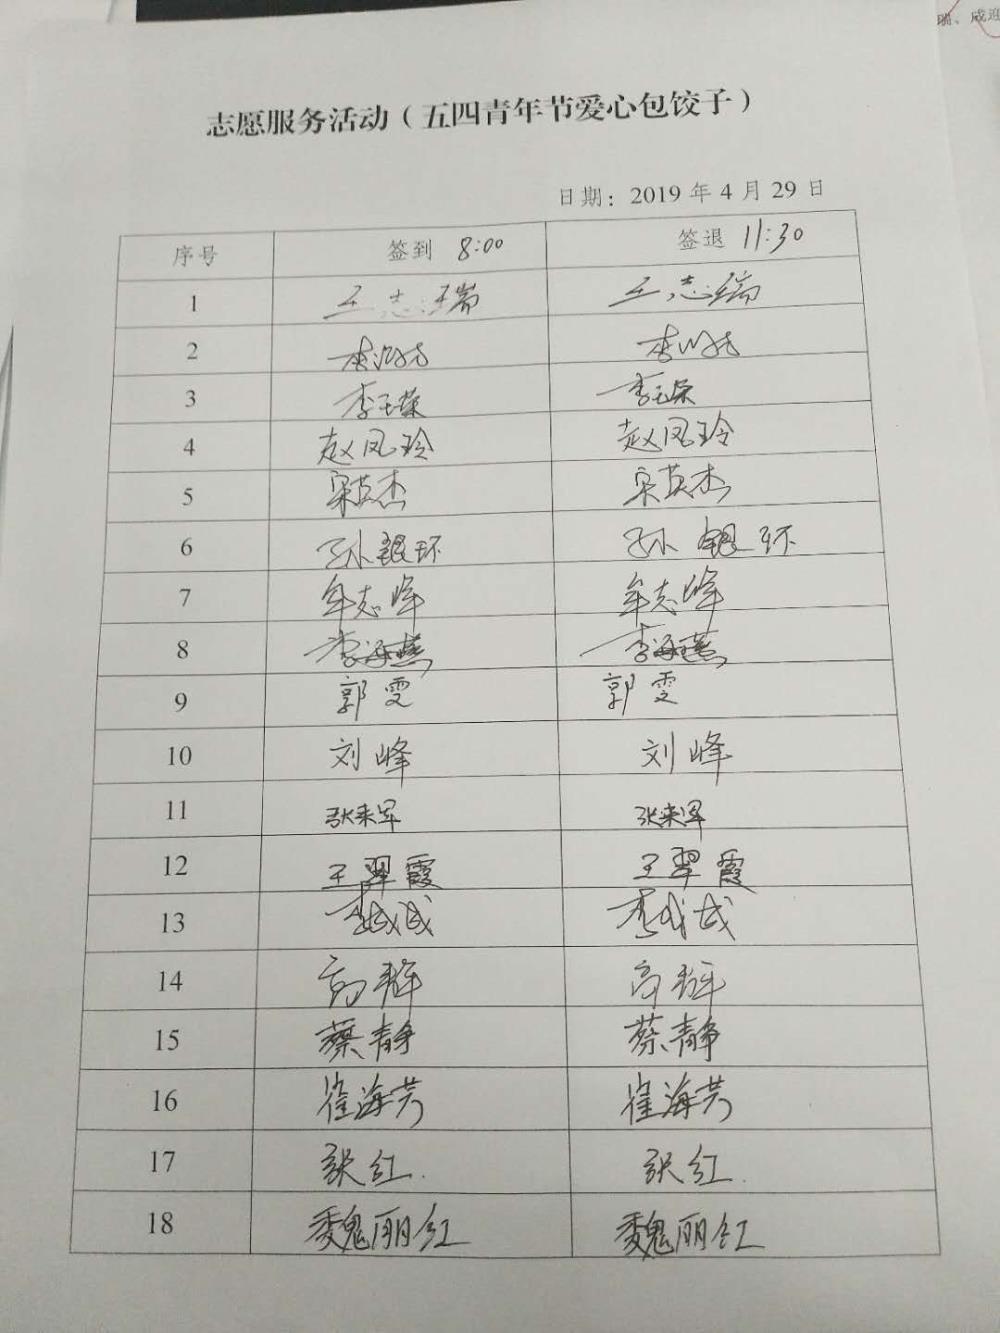 瑞、成迎
志愿服务活动（五四青年节爱心包饺子）
日期：2019 年 4 月 29 日
序号 签到 8:00 签退 11:30
1 王志瑞 王志瑞
2 李 李
3 李玉荣 李玉荣
4 赵凤玲 赵凤玲
5 宋英杰 宋英杰
6 孙银环 孙银环
7 牟志峰 牟志峰
8 李海燕 李海燕
9 郭雯 郭雯
10 刘峰 刘峰
11 张来军 张来军
12 王翠霞 王翠霞
13 李成成 李成成
14 高辉 高辉
15 蔡静 蔡静
16 崔海芳 崔海芳
17 张红. 张红.
18 魏丽红 魏丽红